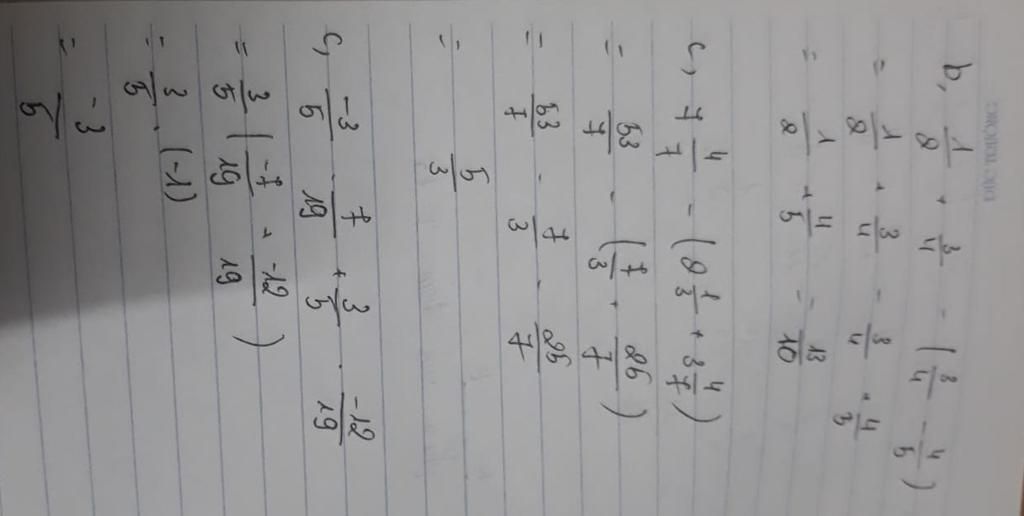 b, 1/2 + 3/4 - (3/4 - 4/5)
= 1/2 + 3/4 - 3/4 + 4/5
= 1/2 + 4/5 = 13/10
c, 7 4/7 - (2 1/3 + 3 4/7)
= 53/7 - (7/3 + 25/7)
= 53/7 - 7/3 - 25/7
= 5/3
c, -3/5 . 7/19 + 3/5 . -12/19
= 3/5 (-7/19 + -12/19)
= 3/5 . (-1)
= -3/5